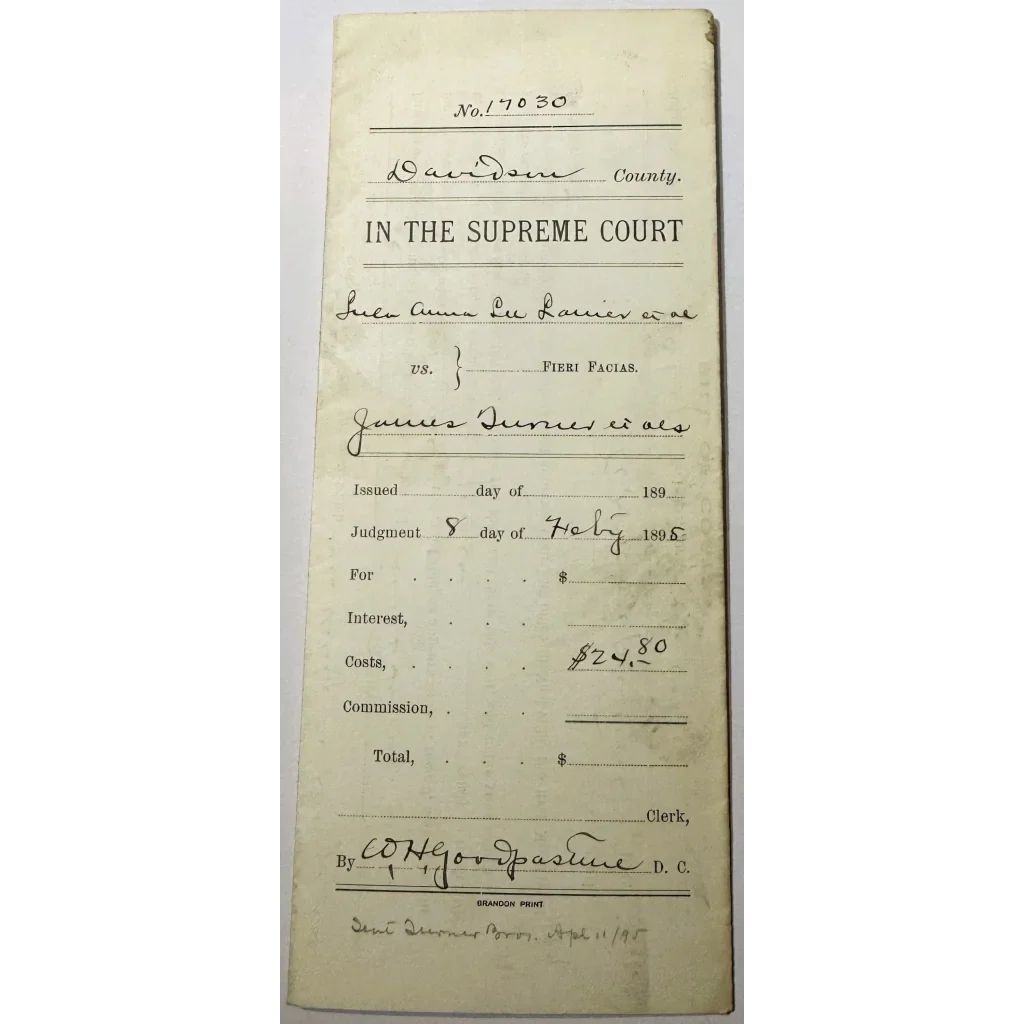 No. 17030
Davidson County.
IN THE SUPREME COURT
Lula Anna Lee Lanier et al
vs. } FIERI FACIAS.
James Turner et als
Issued day of 189
Judgment 8 day of Feby 1895
For . . . . $
Interest, . . .
Costs, . . . . $24.80
Commission, . . .
Total, . . . $
Clerk,
By W H Goodpasture D. C.
BRANDON PRINT
Sent Turner Bros. Apl 11/95